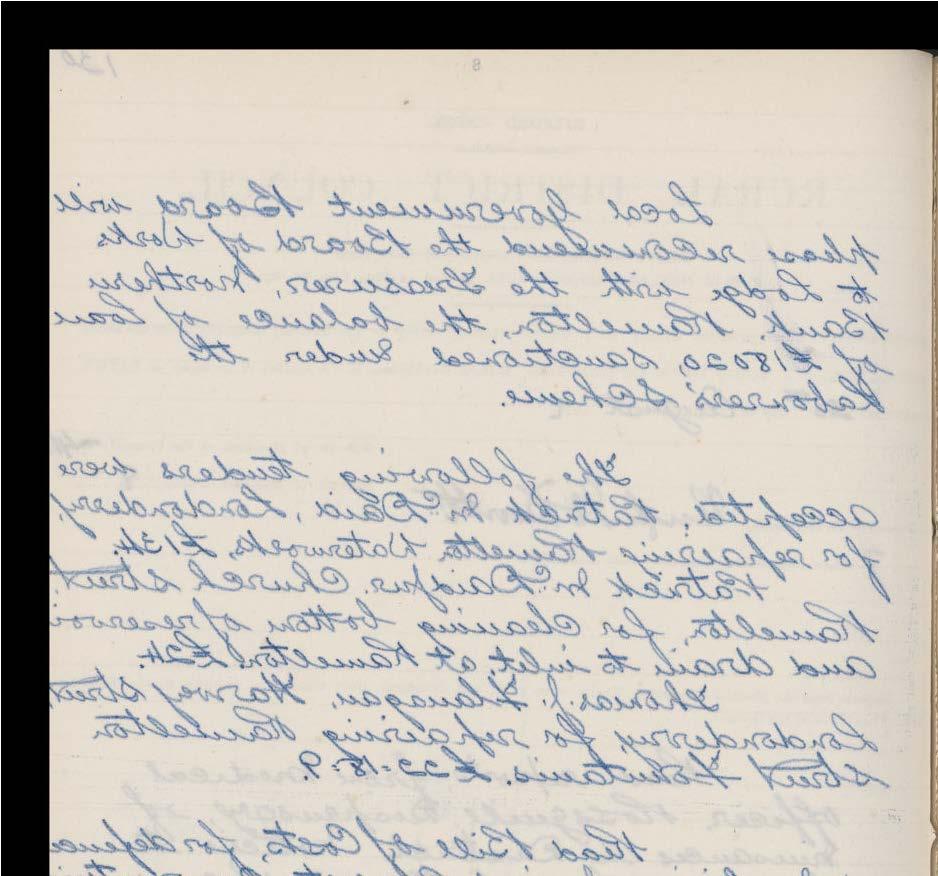 130
8
Local Government Board will
please recommend the Board of Works
to Lodge with the Treasurer, Northern
Bank Ramelton, the balance of loan
of £18020, sanctioned under the
Labourers' Scheme.
The following tenders were
accepted; Patrick McDaid, Londonderry,
for repairing Ramelton Waterworks, £134.
Patrick McDaid Jnr. Church Street,
Ramelton, for cleaning bottom of reservoir
and drain to inlet at Ramelton £24.
Thomas J. Flanagan, Harvey Street
Londonderry, for repairing Ramelton
Street Fountains. £22-18-9
Read Bill of Costs, for defence